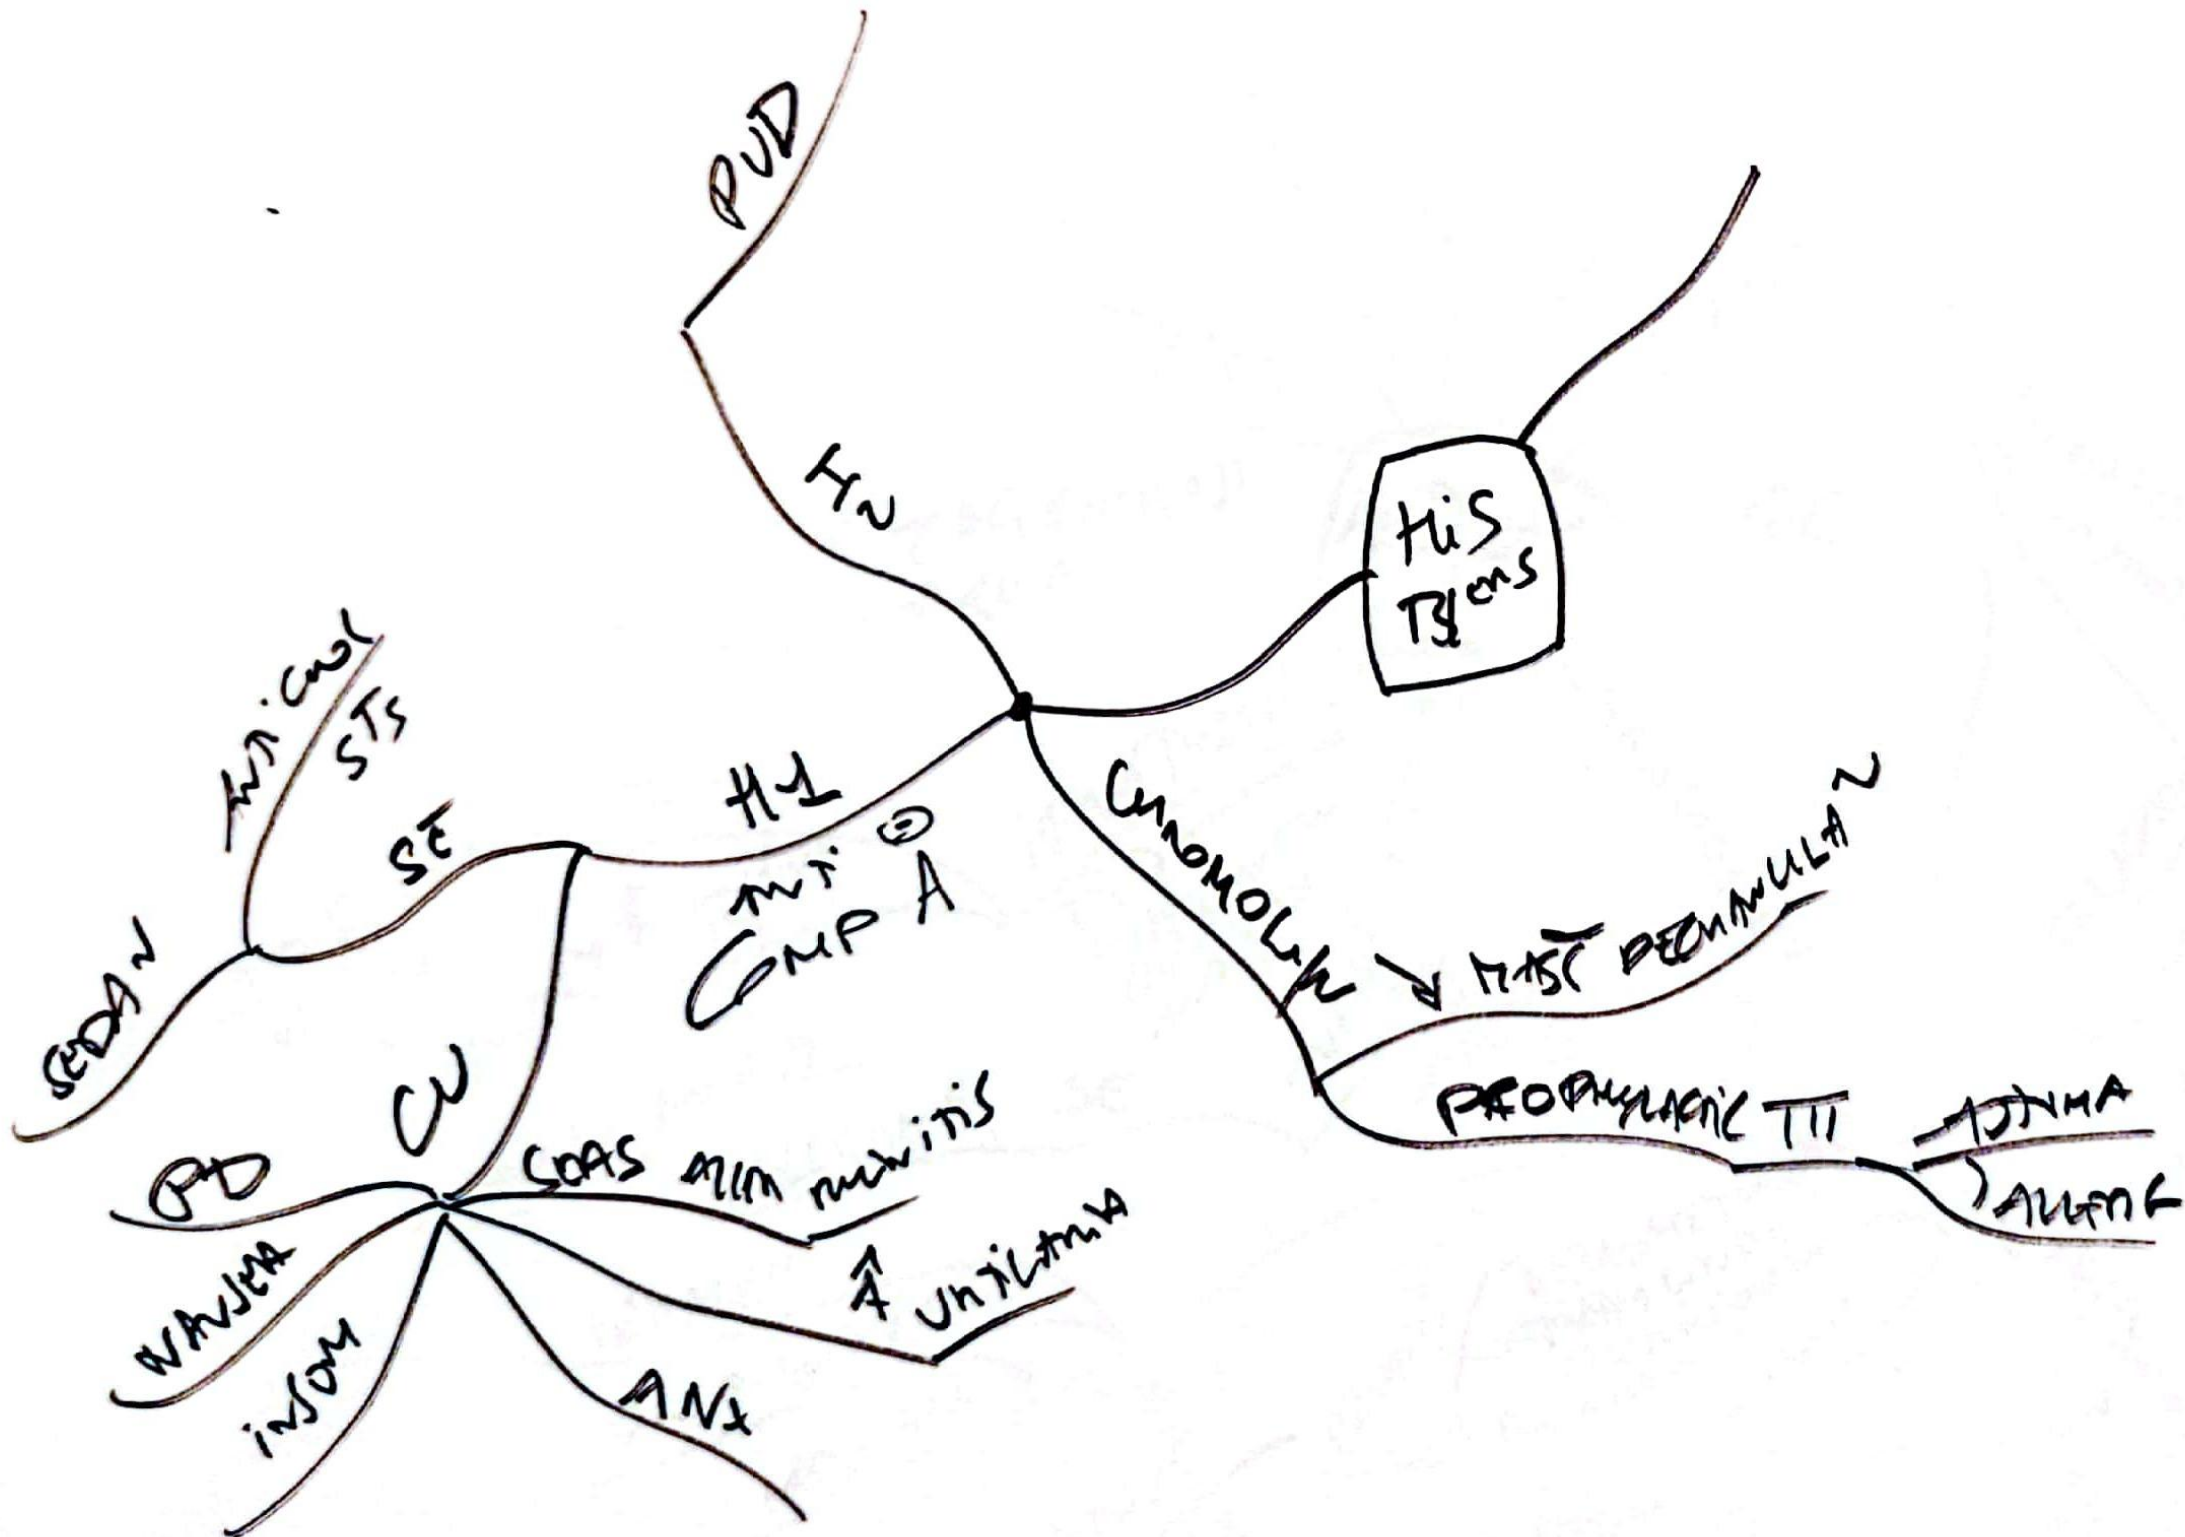 PUD
H2
HiS
anti chol
STS
SE
H1
anti
COMP A
SEDAN
CU
PD
NAUSEA
INSOM
ANX
SEAS ALLER rhinitis
URTICARIA
CHROMOLYN
↘ MAST DEGRANULAN
PROPHYLACTIC TTT
ASTHMA
ALLERG